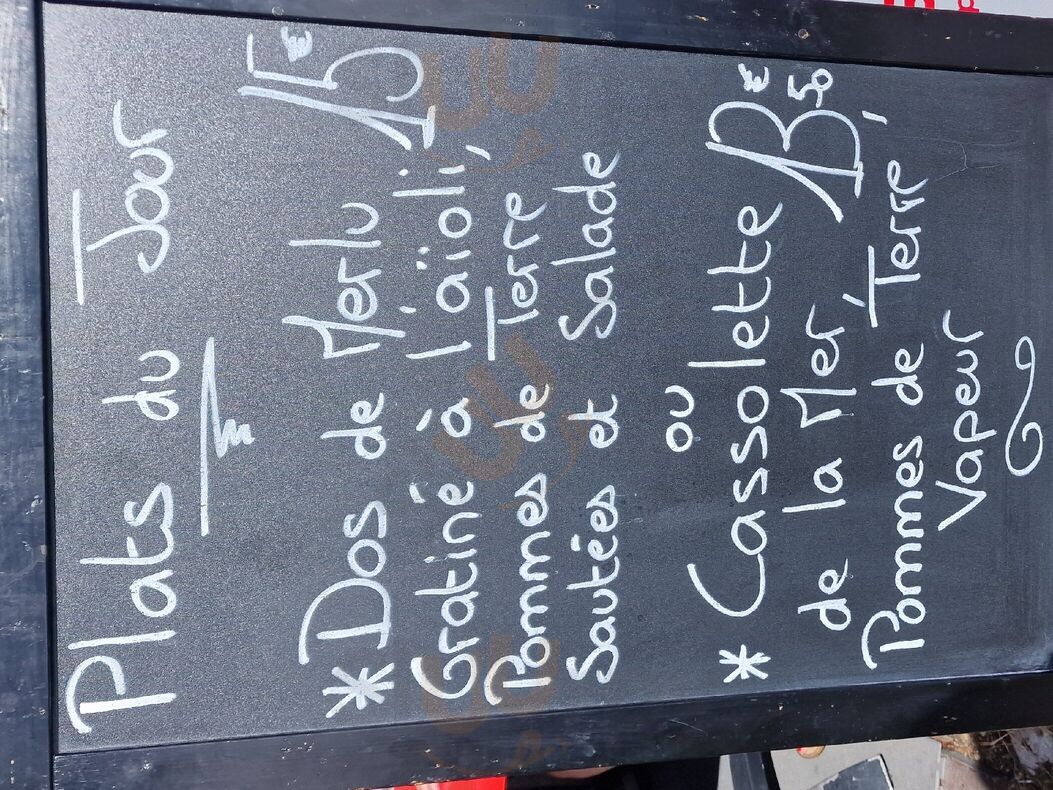 Plats du Jour
* Dos de Merlu 15€
Gratiné à l'aïoli,
Pommes de Terre
Sautées et Salade
ou
* Cassolette 13€50
de la Mer,
Pommes de Terre
Vapeur